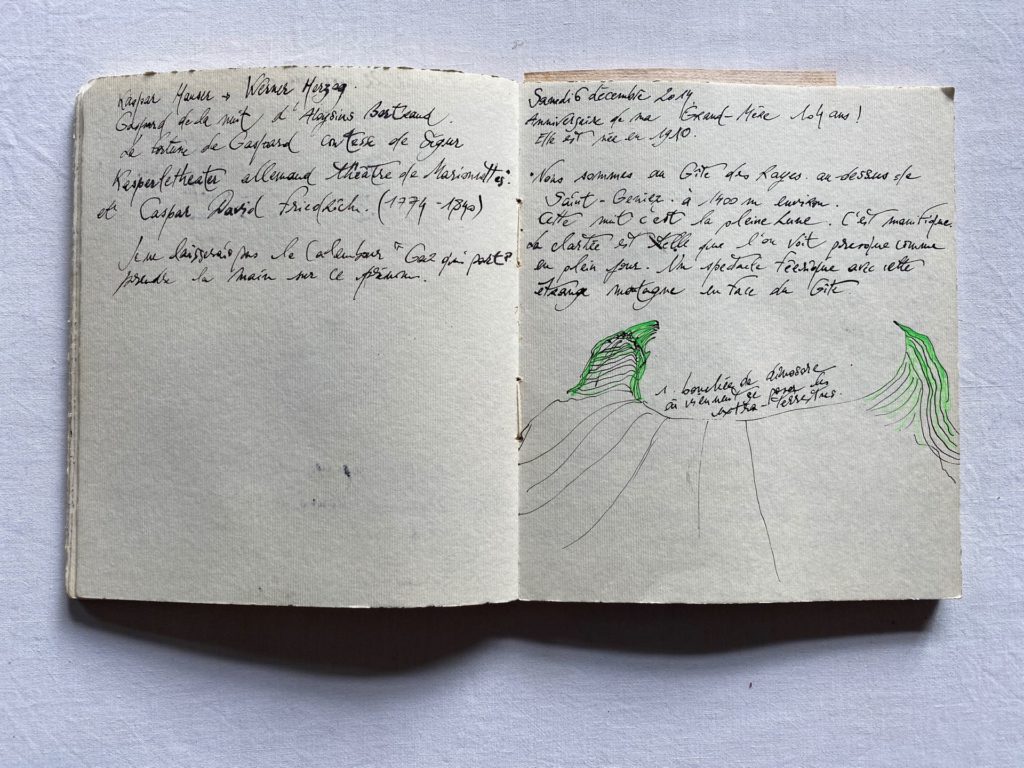 Kaspar Hauser → Werner Herzog.
Gaspard de la nuit d'Aloysius Bertrand.
La fortune de Gaspard contesse de Ségur
Kasperletheater allemand théâtre de Marionnettes.
et Caspar David Friedrich. (1774 - 1840)
Je ne laisserais pas le Calembour "Gaz qui part"
prendre la main sur ce prénom.
Samedi 6 décembre 2014
Anniversaire de ma Grand-Mère 104 ans !
Elle est née en 1910.
Nous sommes au Gîte des Rayes au-dessus de
Saint-Geniez. à 1400 m environ.
Cette nuit c'est la pleine Lune. C'est magnifique.
La clartée est telle que l'on voit presque comme
en plein jour. Un spectacle féerique avec cette
étrange montagne en face du Gîte
1. bouchée de dinosore
où viennent se poser les
extra-terrestres.